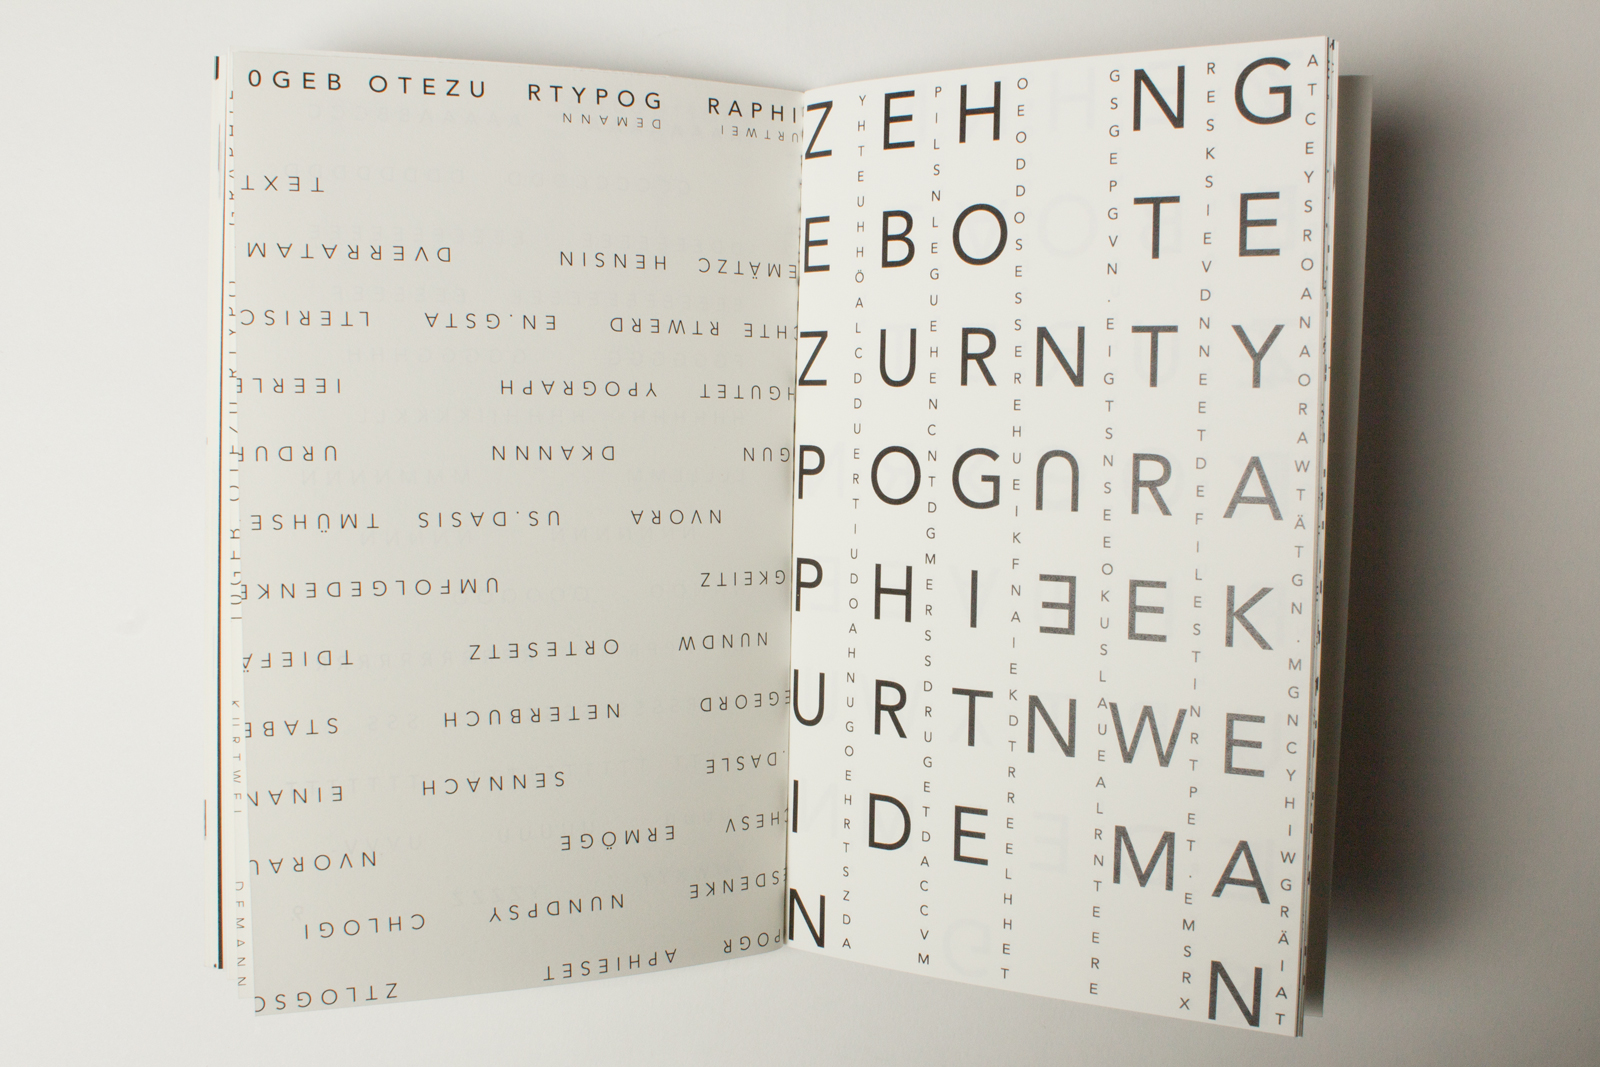 0GEB OTEZU RTYPOG RAPHI
POGR APHIESET ZTLOGSC
SDENKE NUNDPSY CHLOGI
CHESV ERMÖGE NVORAU
.DASLE SENNACH EINAN
EGEORD NETERBUCH STABE
NUNDW ORTESETZ TDIEFÄ
GKEITZ UMFOLGEDENKE
NVORA US.DASIS TMÜHSE
GUN DKANNN URDUR
HGUTET YPOGRAPH IEERLE
CHTE RTWERD EN.GSTA LTERISC
EMÄTZC HENSIN DVERRATAM
TEXT
URTWEI DEMANN
KURTWEI DEMANN
Z E H N G
E B O T E
Z U R N T Y
P O G U R A
P H I E E K
U R T N W E
I D E M A
N N
YHTEUHHÖALCDDUERTIUDOAHNUGOEHRTSZDA
PILSNLEGUEHENCNTDGMERSSDRUGETDACCVM
OEODDOSESSEREHUEIKFNAIEKDTRREELHHET
GSGEPGVN.EIGTSNSEEOKUSLAUEALRNTEERE
RESKSIEVDNNETDEFILESTINRTPET.EMSRX
ATCEYSROANAORAWTÄTGN.MGNCYHIWGRÄIAT